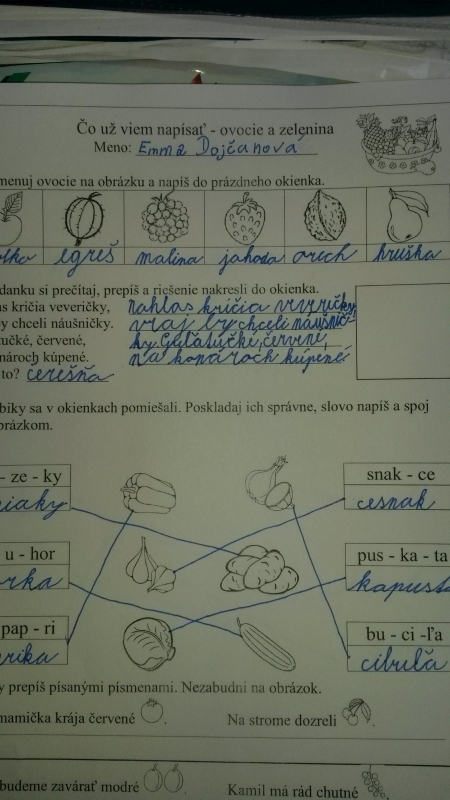 Čo už viem napísať - ovocie a zelenina
Meno: Emma Dojčanová
menuj ovocie na obrázku a napíš do prázdneho okienka.
lko egreš malina jahoda orech hruška
danku si prečítaj, prepíš a riešenie nakresli do okienka.
s kričia veveričky, nahlas kričia
y chceli náušničky. vraj by chceli náušnič-
učké, červené, ky. Guľatučké, červené,
nároch kúpené. na konároch kúpené
to? cerešňa
biky sa v okienkach pomiešali. Poskladaj ich správne, slovo napíš a spoj
brázkom.
- ze - ky snak - ce
iaky cesnak
u - hor pus - ka - ta
rka kapusta
pap - ri bu - ci -ľa
rika cibuľa
y prepíš písanými písmenami. Nezabudni na obrázok.
mamička krája červené . Na strome dozreli .
budeme zavárať modré . Kamil má rád chutné .